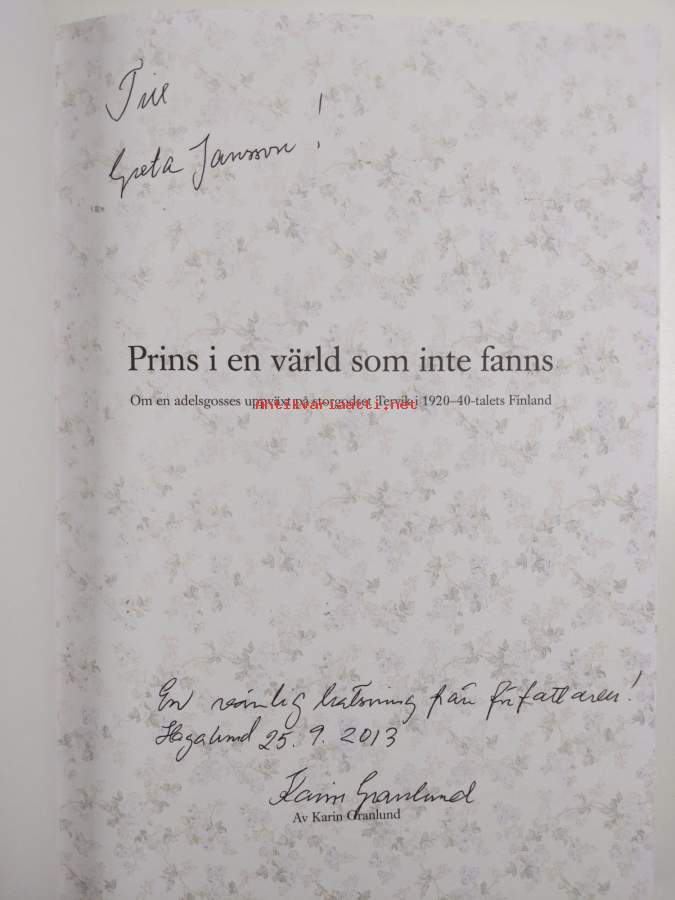 Till
Greta Jansson!
Prins i en värld som inte fanns
Om en adelsgosses uppväxt på storgodset Tervik i 1920–40-talets Finland
antikvariaatti.net
En vänlig hälsning från författaren!
Hagalund 25.9.2013
Karin Granlund
Av Karin Granlund